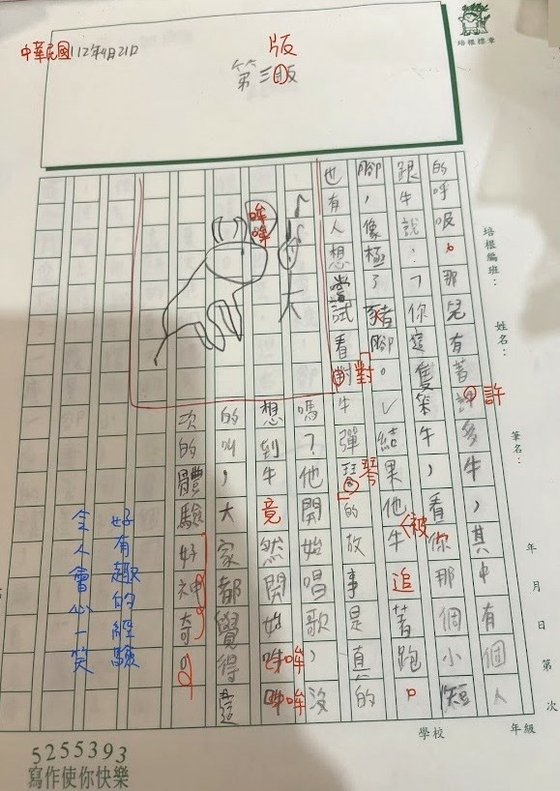 中華民國112年4月21日
版
第三版
培根標章
培根編班：
姓名：
筆名：
年　月　日　第　次
學校　年級
的呼吸。那兒有著許多牛，其中有個人
許
跟牛說：「你這隻笨牛，看你那個小短
腳，像極了豬腳。」結果他被牛追著跑。
也有人想嘗試看對牛彈琴的故事是真的
對
琴
嗎？他開始唱歌，沒
想到牛竟然開始哞哞
的叫，大家都覺得這
次的體驗好神奇。
哞哞
好有趣的經驗
令人會心一笑
5255393
寫作使你快樂